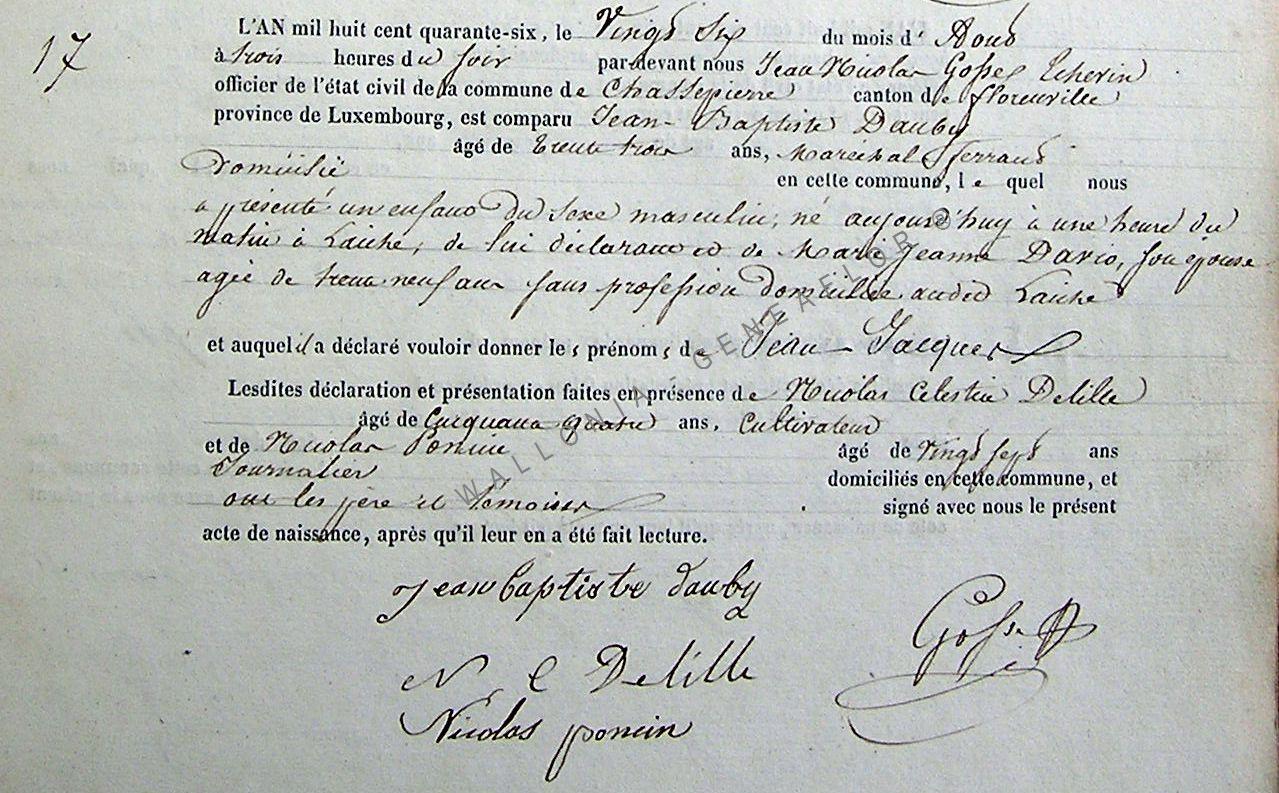 17
L'AN mil huit cent quarante-six, le Vingt Six du mois d' Aout
à trois heures du soir par-devant nous Jean Nicolas Gosset Echevin
officier de l'état civil de la commune de Chassepierre canton de florenville
province de Luxembourg, est comparu Jean-Baptiste Dauby
âgé de trente trois ans, Maréchal ferrant
Domicilié en cette commune, le quel nous
a présenté un enfant du sexe masculin, né aujourd'huy à une heure du
matin à Laiche, de lui déclarant et de Marie Jeanne Dario, son épouse
agée de trente neuf ans sans profession domiciliée audit Laiche
et auquel il a déclaré vouloir donner les prénoms de Jean Jacques
Lesdites déclaration et présentation faites en présence de Nicolas Celestin Delille
âgé de Cinquante quatre ans, Cultivateur
et de Nicolas Poncin âgé de vingt sept ans
Journalier domiciliés en cette commune, et
ont les père et témoins signé avec nous le présent
acte de naissance, après qu'il leur en a été fait lecture.
Jean Baptiste dauby
Gosset
N C Delille
Nicolas poncin
WALLONIA - GENEAFLOR ©